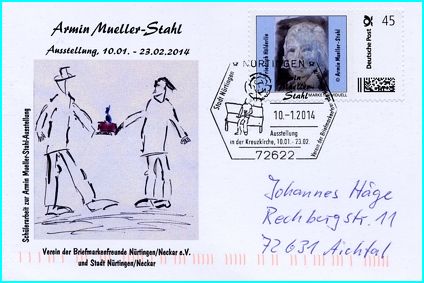 Armin Mueller-Stahl
Ausstellung, 10.01. - 23.02.2014
Schülerarbeit zur Armin Mueller-Stahl-Ausstellung
Verein der Briefmarkenfreunde Nürtingen/Neckar e.V.
und Stadt Nürtingen/Neckar
Friedrich Hölderlin
© Armin Mueller-Stahl
Deutsche Post
45
NÜRTINGEN
Stadt Nürtingen
Armin
Mueller-
Stahl
10.-1.2014
Ausstellung
in der Kreuzkirche, 10.01.-23.02.
72622
Verein der Briefmarkenfreunde
Johannes Häge
Rechbergstr. 11
72631 Aichtal